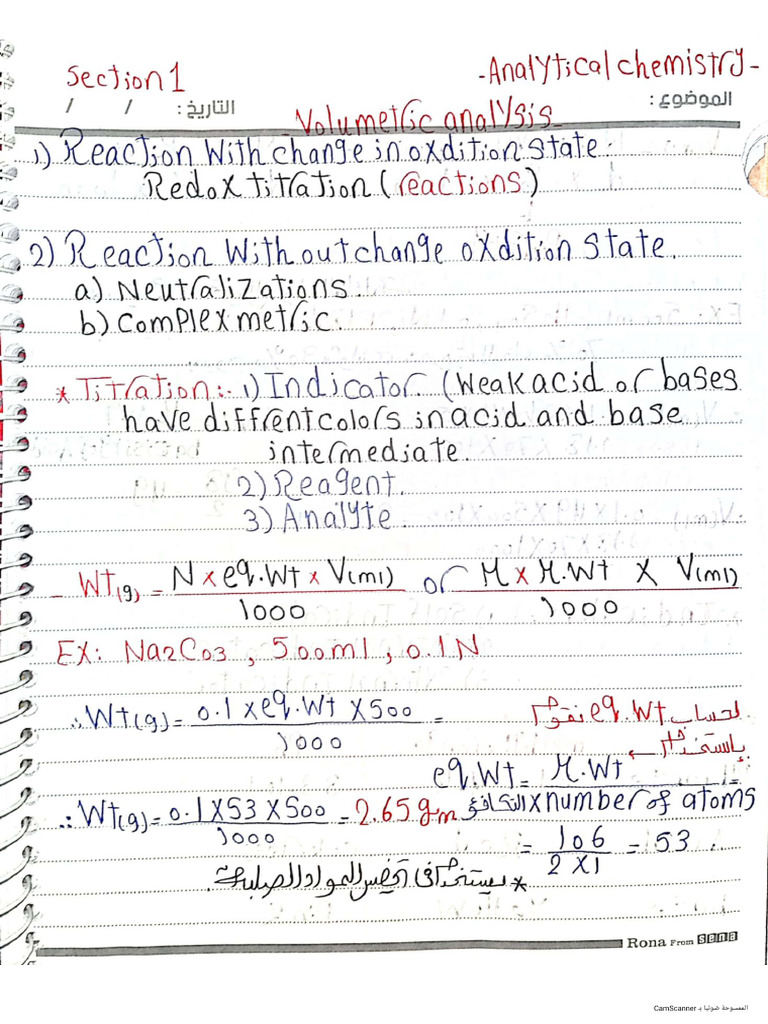 Section 1 -Analytical chemistry-
/ / التاريخ: الموضوع:
Volumetric analysis
1) Reaction With change in oxdition state.
Redox titration (reactions)
2) Reaction With out change oxdition state.
a) Neutralizations.
b) Complex metric.
* Titration:- 1) Indicator. (Weak acid or bases
have diffrent colors in acid and base
intermediate.
2) Reagent.
3) Analyte.
- Wt(g) = N x eq.Wt x V(ml) / 1000 or M x M.Wt X V(ml) / 1000
EX: Na2Co3, 500ml, 0.1N
∴ Wt(g) = 0.1 x eq.Wt x 500 / 1000 =
لحساب eq.Wt نقوم
بإستخدام ←
eq.Wt = M.Wt / التكافؤ x number of atoms =
∴ Wt(g) = 0.1 x 53 x 500 / 1000 = 2.65 gm
= 106 / 2 X 1 = 53.
* يستخدم فى تحضير المواد الصلبة.
Rona From sena
الممسوحة ضوئيا بـ CamScanner